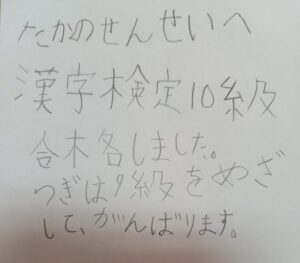 たかのせんせいへ
漢字検定10級
合木各しました。
つぎは9級をめざ
して、がんばります。